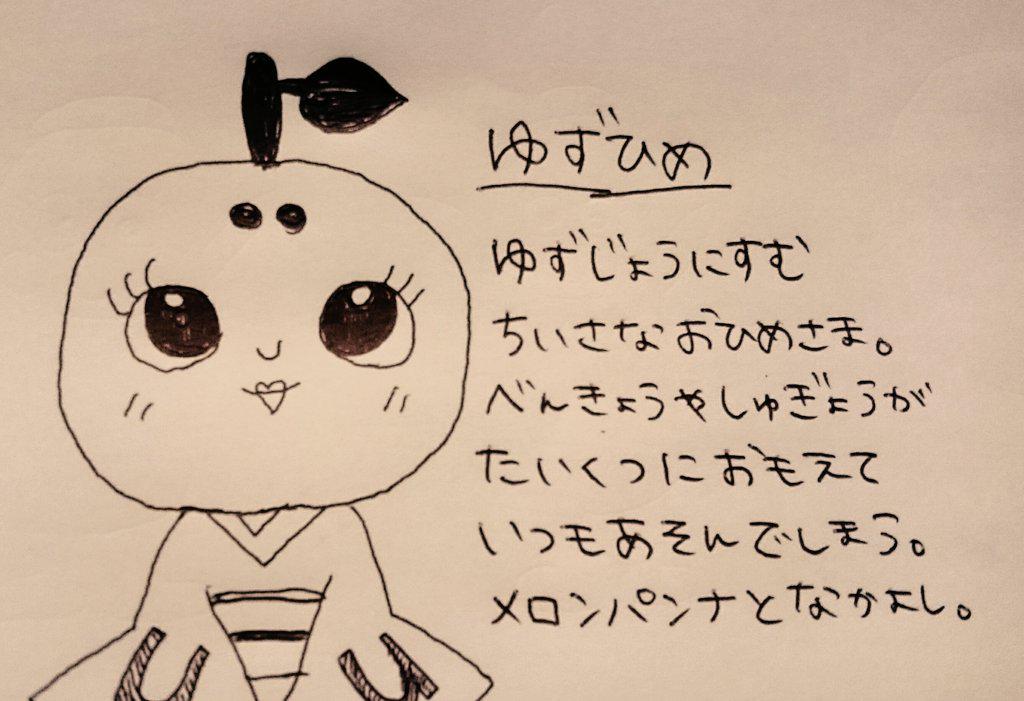 ゆずひめ
ゆずじょうにすむ
ちいさなおひめさま。
べんきょうやしゅぎょうが
たいくつにおもえて
いつもあそんでしまう。
メロンパンナとなかよし。